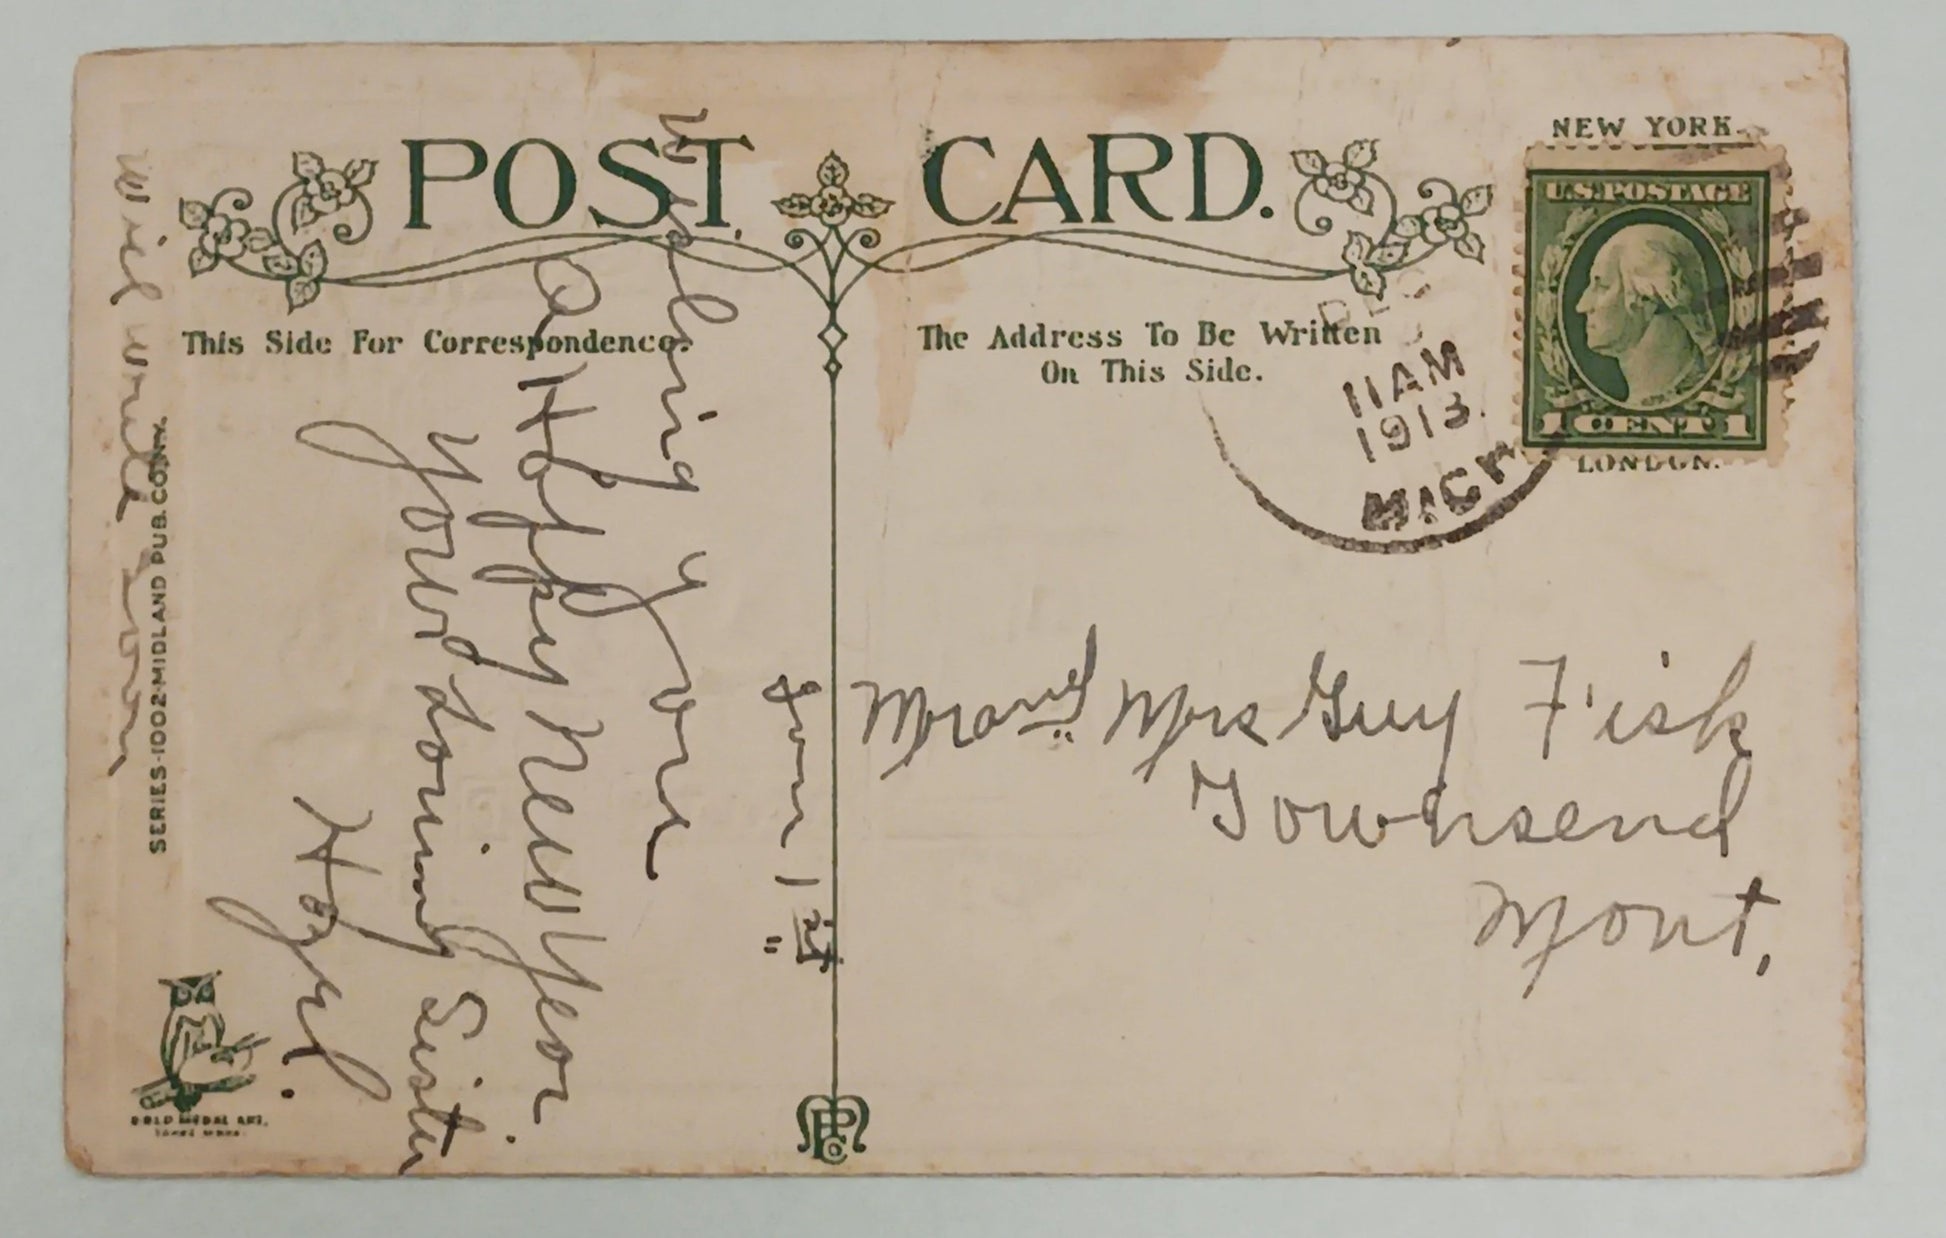 POST CARD.
This Side For Correspondence.
The Address To Be Written
On This Side.
NEW YORK
U.S. POSTAGE
1 CENT 1
LONDON.
DEC
11 AM
1913
MICH
Jan 1st
Wishing you
a Happy New Year
Your Loving Sister
Hazel.
Will write soon
Mr and Mrs Guy Fisk
Townsend
Mont,
SERIES-1002-MIDLAND PUB. CO. N.Y.
GOLD MEDAL ART.